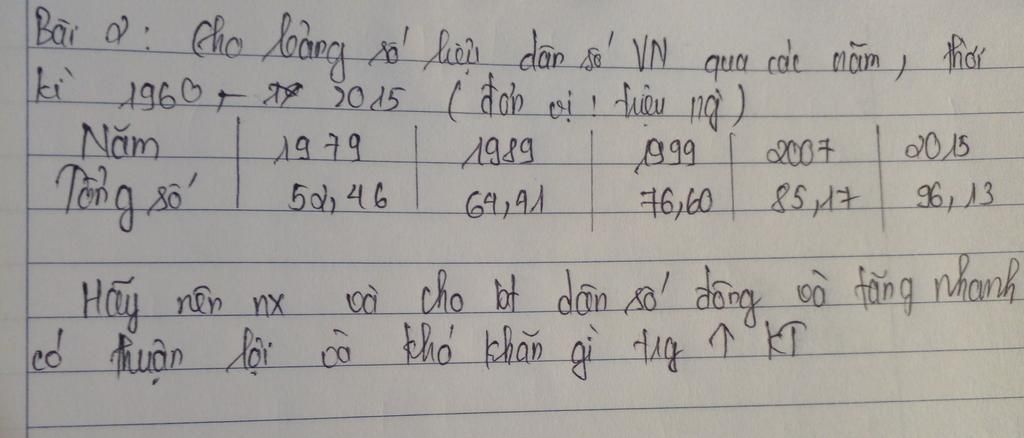 Bài 2: Cho bảng số liệu dân số VN qua các năm, thời
kì 1960 - 2015 (đơn vị: triệu ng)
Năm 1979 1989 1999 2007 2015
Tổng số 52,46 64,41 76,60 85,17 96,13
Hãy nên nx và cho bt dân số đông và tăng nhanh
có thuận lợi và khó khăn gì trg ↑ KT